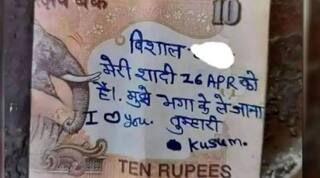 बैंक
10
विशाल
मेरी शादी 26 APR को
है।. मुझे भगा के ले जाना
I ♡ you. तुम्हारी
• Kusum.
TEN RUPEES